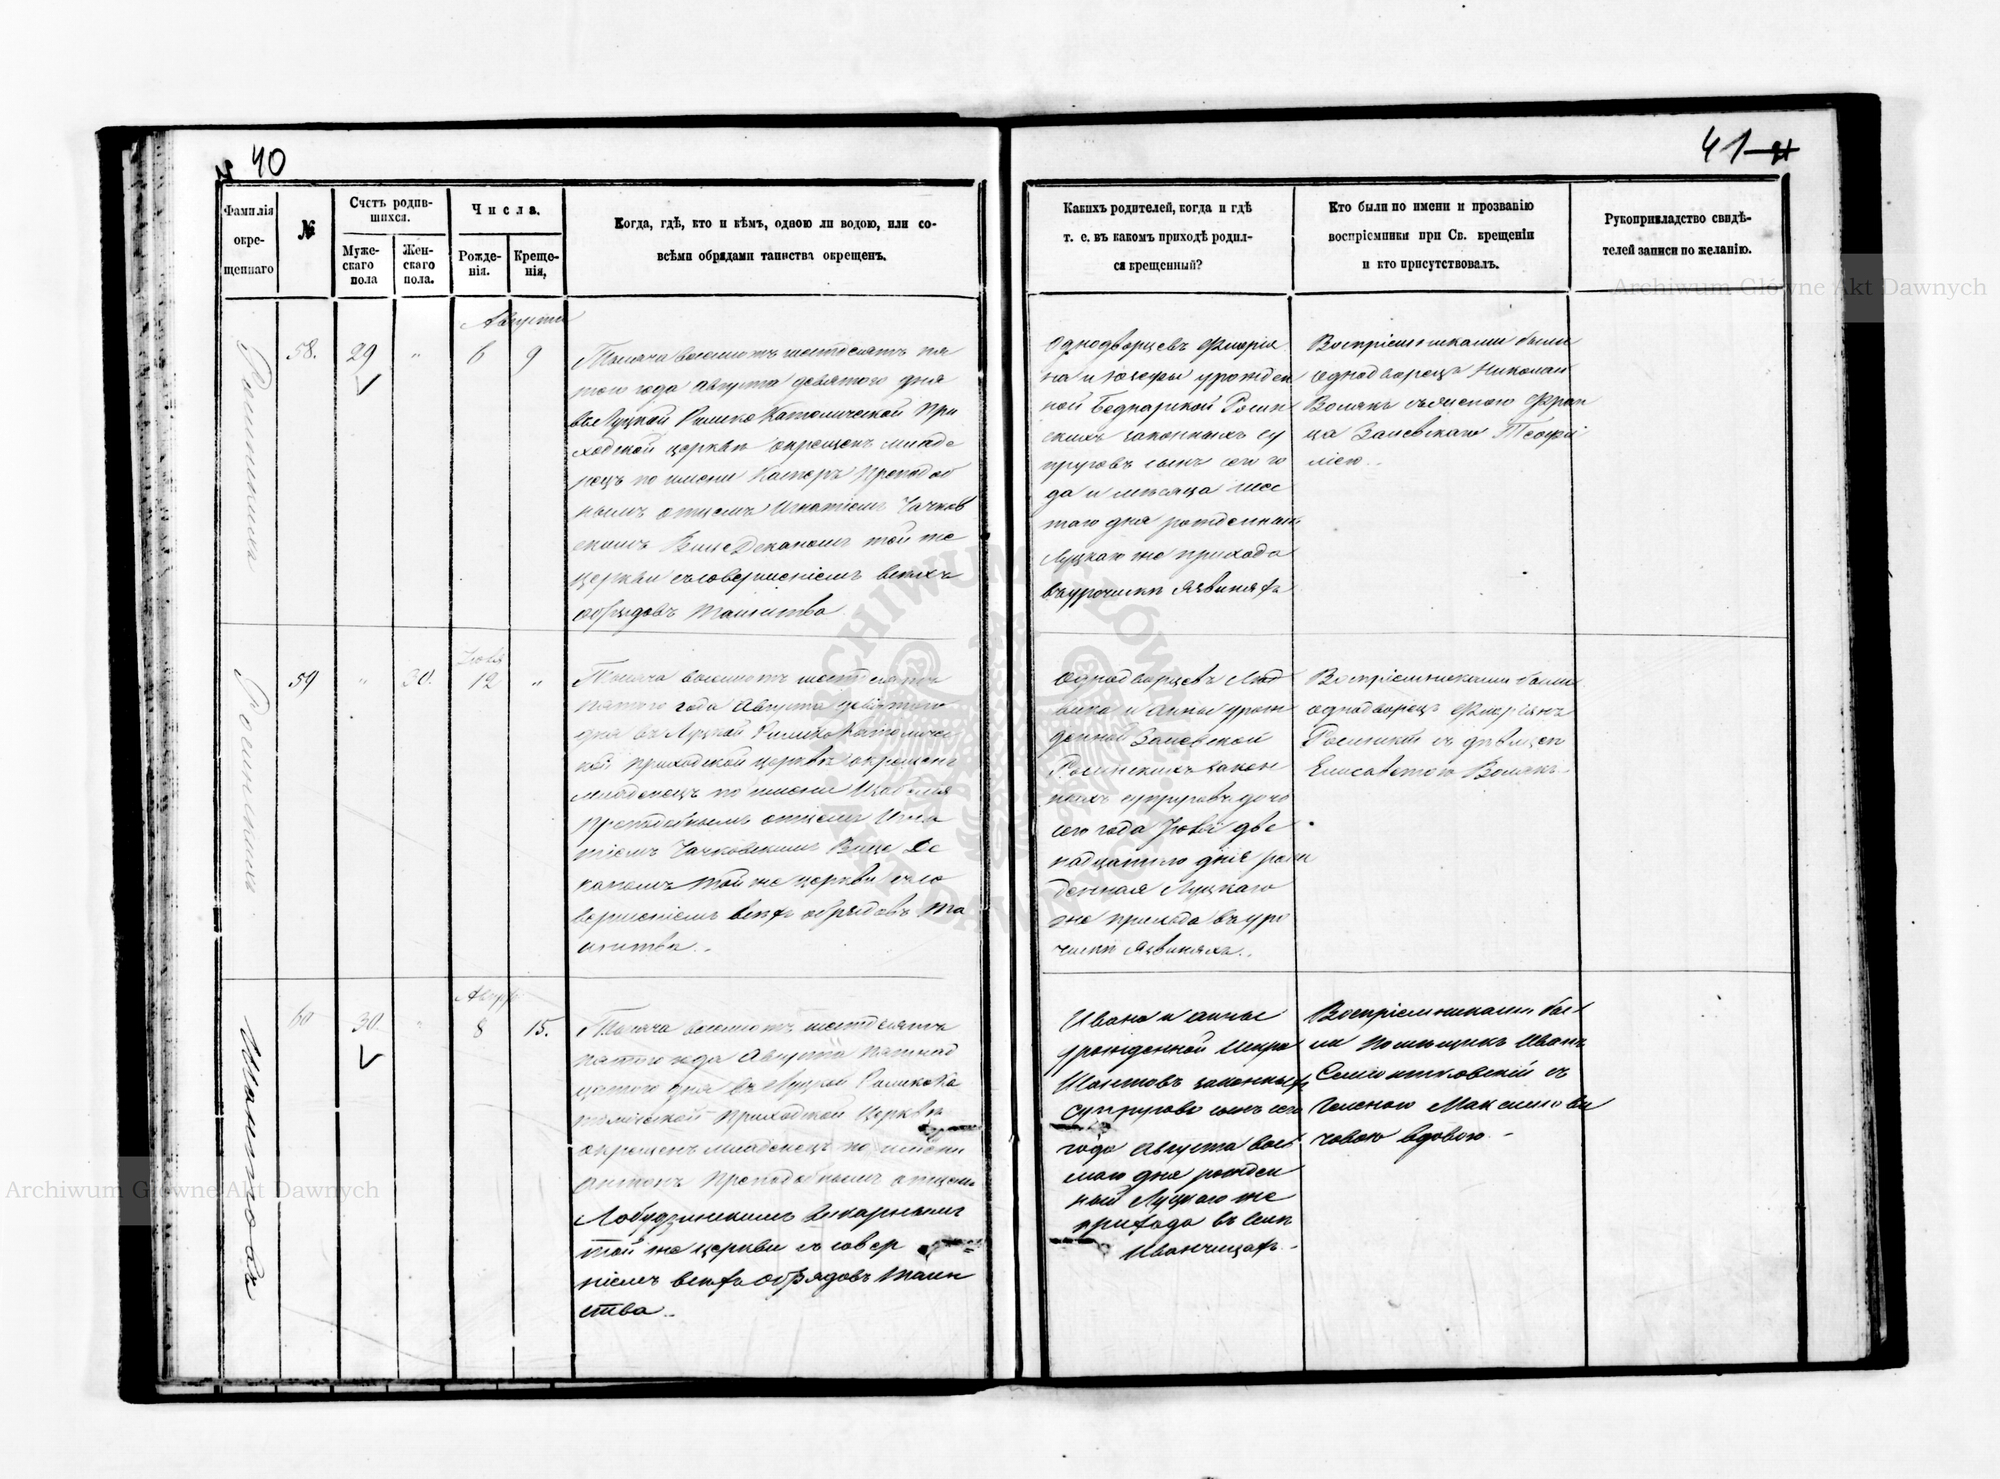 40
41
Фамилія
окре-
щеннаго
№
Счетъ родив-
шихся.
Муже-
скаго
пола
Жен-
скаго
пола.
Числа.
Рожде-
нія.
Креще-
нія,
Когда, гдѣ, кто и кѣмъ, одною ли водою, или со-
всѣми обрядами таинства окрещенъ.
Какихъ родителей, когда и гдѣ
т. е. въ какомъ приходѣ родил-
ся крещенный?
Кто были по имени и прозванію
воспріемники при Св. крещеніи
и кто присутствовалъ.
Рукоприкладство свидѣ-
телей записи по желанію.
58.
29
"
Августа
6
9
Тысяча восемьсотъ шестьдесятъ пя
того года Августа девятаго дня
въ Луцкой Римско Католической При
ходской церкви окрещенъ младе
нецъ по имени Каспаръ Преподоб
нымъ отцемъ Игнатіемъ Чачков
скимъ Вице Деканомъ той же
церкви съ совершеніемъ всѣхъ
обрядовъ таинства
Однодворцевъ Флоріа
на и Юзефы урожден
ной Беднарской Росин
скихъ законныхъ су
пруговъ сынъ сего го
да и мѣсяца шес
таго дня рожденный
Луцкаго же прихода
въ урочищѣ
Воспріемниками были
однодворецъ Николай
Волякъ съ женою Фран
ца Заіевскаго Теофи
лією.
59
"
30.
Іюля
12
"
Тысяча восемьсотъ шестьдесятъ
пятого года Августа девятаго
дня въ Луцкой Римско Католичес
кой приходской церкви окрещенъ
младенецъ по имени
Преподобнымъ отцемъ Игна
тіемъ Чачковскимъ Вице Де
каномъ той же церкви съ со
вершеніемъ всѣхъ обрядовъ та
инства.
Однодворцевъ Люд
вика и Анны урож
денной Заіевской
Росинскихъ закон
ныхъ супруговъ дочь
сего года Іюля две
надцатаго дня рож
денная Луцкаго
же прихода въ уро
чищѣ
Воспріемниками были
однодворецъ Флоріанъ
Росинскій съ дѣвицею
Елисаветою Волякъ.
Шантовъ
60
30
"
8
15.
Тысяча восемьсотъ шестьдесятъ
пятого года Августа пятнад
цатого дня въ Луцкой Римско Ка
толической Приходской Церкви
окрещенъ младенецъ по имени
Антонъ Преподобнымъ отцемъ
Лобудзинскимъ Викарнымъ
той же церкви съ совер
ніемъ всѣхъ обрядовъ таин
ства.
Ивана и Анны
урожденной
Шантовъ законныхъ
супруговъ сынъ сего
года Августа вось
маго дня рожден
ный Луцкаго же
прихода въ селѣ
Иванчицахъ.
Воспріемниками бы
ли помѣщикъ Иванъ
съ
Еленою Максимови
човою вдовою.
Archiwum Główne Akt Dawnych
Archiwum Główne Akt Dawnych